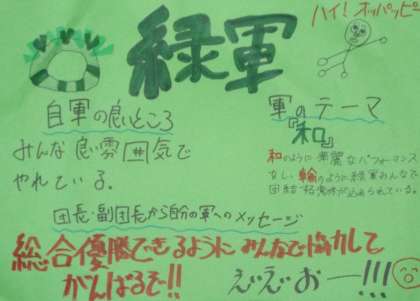 ハイ！オッパッピー
緑軍
自軍の良いところ
みんな良い雰囲気で
やれている。
軍のテーマ
『和』
和のように華麗なパフォーマンス
をし、輪のように緑軍みんなで
団結
団長・副団長から自分の軍へのメッセージ
総合優勝できるようにみんなで協力して
がんばるぞ!!
えいえいおー!!!